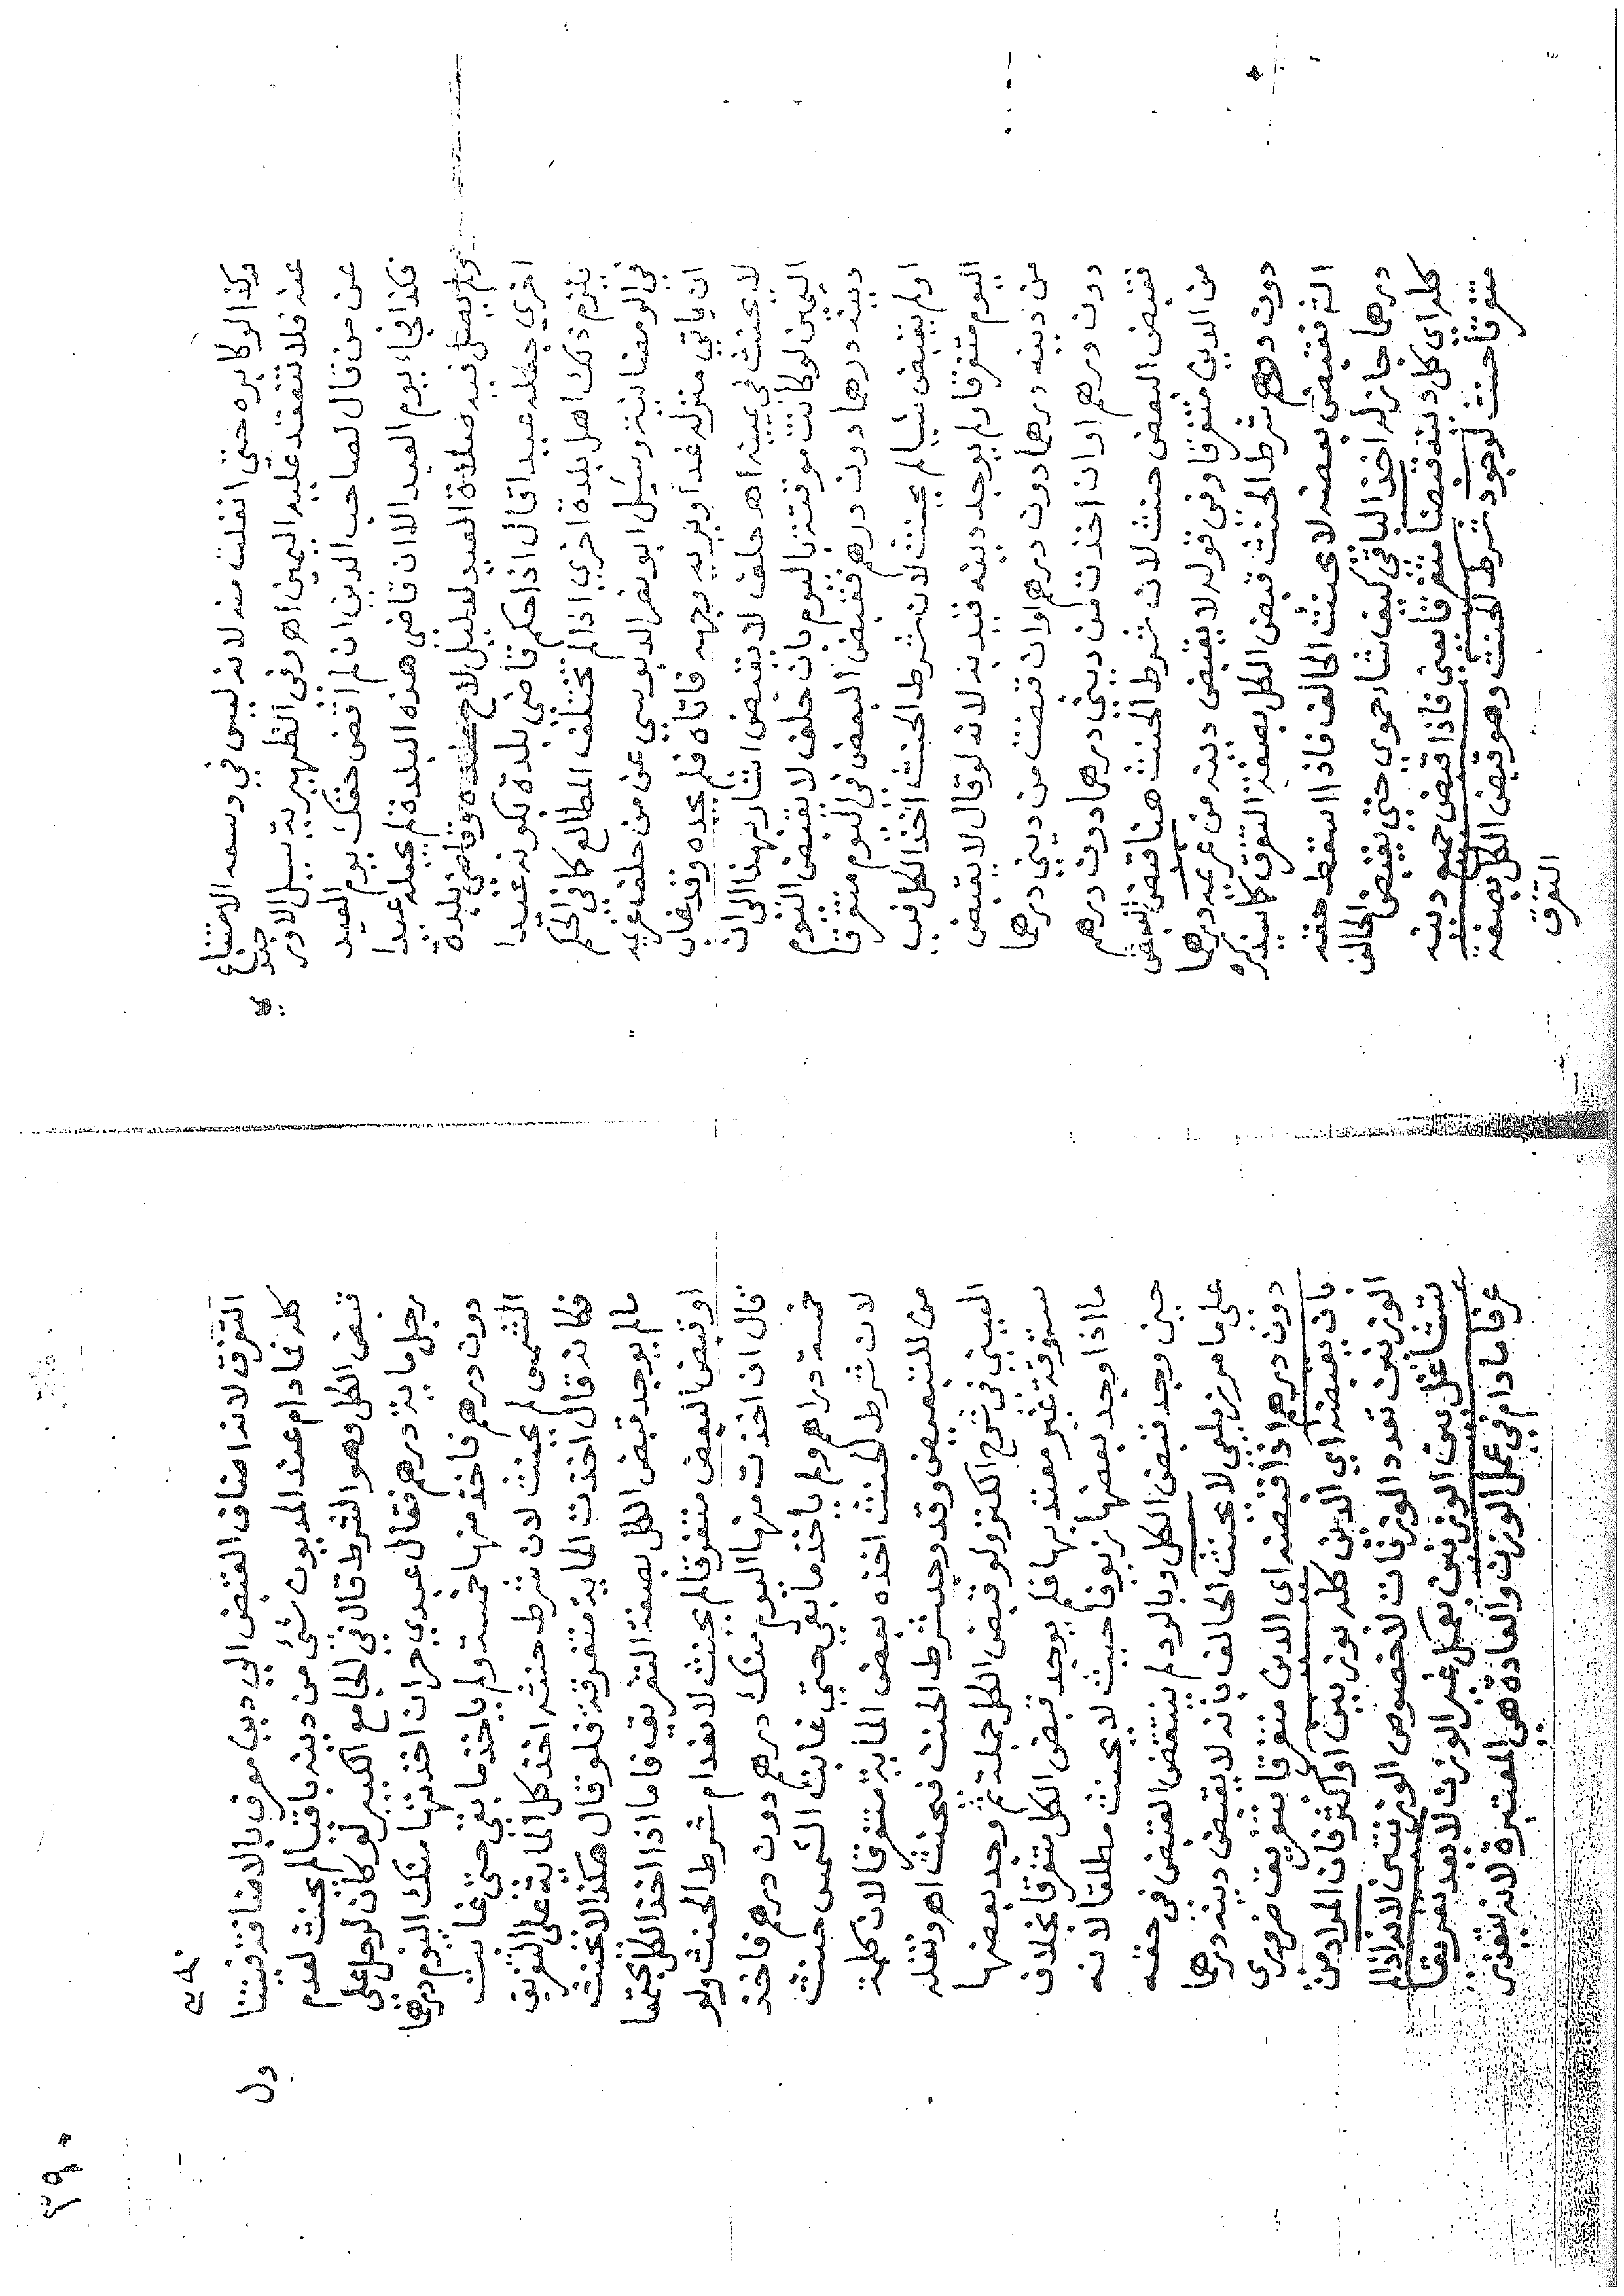 وكذا لو كابره حتى انفلت منه لانه ليس في وسعه الامتناع
عنه فلا تنعقد عليه اليمين اهـ وفي الظهيرية سيل الاوزجندي
عن من قال لصاحب الدين ان لم اقض حقك يوم العيد
فكذا فجاء يوم العيد الا ان قاضي هذه البلدة لم يجعله عيدا
ولم يصل فيه صلاة العيد لدليل لاح عنده وقاضي بلدة
اخرى جعله عيدا قال اذا حكم قاضي بلدة بكونه عيدا
يلزم ذلك اهل بلدة اخرى اذا لم تختلف المطالع كما في الحكم
في الرمضانية وسيل ابو نصر الدبوسي عن من حلف غريمه
ان ياتي منزله غدا ويريه وجهه فاتاه فلم يجده وقد غاب
لا يحنث في يمينه اهـ حلف لا يقبض اشار بهذا الى ان
اليمين لو كانت موقتة باليوم بان حلف لا يقبض اليوم
دينه درهما دون درهم فقبض البعض في اليوم متفرقا
او لم يقبض شيا لم يحنث لان شرط الحنث اخذ الكل فيه
اليوم متفرقا ولم يوجد دينه قيد به لانه لو قال لا يقبض
من دينه درهما دون درهم او ان قبضت من ديني درهما
دون درهم او ان اخذت من ديني درهما دون درهم
فقبض البعض حنث لان شرط الحنث هنا قبض البعض
من الدين متفرقا وفي قوله لا يقبض دينه من غريمه درهما
دون درهم شرط الحنث قبض الكل بصفة التفرق كما سيذكره
انه بقبض بعضه لا يحنث الحالف فاذا اسقط حقه
درهما جاز له اخذ الباقي كيف شاء حموي حتى يقبض الحالف
كله اي كل دينه قبضا متفرقا يعني فاذا قبض جميع دينه
متفرقا حنث لوجود شرط الحنث وهو قبض الكل بصفة
التفرق
التفرق لانه اضاف القبض الى دين معرف بالاضافة فيتناول
كله فما دام عند المديون شيء من دينه باقيا لم يحنث لعدم
قبض الكل وهو الشرط قال في الجامع الكبير لو كان لرجل على
رجل ماية درهم فقال عبدي حر ان اخذتها منك اليوم درهما
دون درهم فاخذ منها خمسة ولم ياخذ ما بقي حتى غابت
الشمس لم يحنث لان شرط حنثه اخذ كل الماية على التفريق
فكانه قال اخذت الماية متفرقة فلو قال هكذا لا يحنث
ما لم يوجد قبض الكل بصفة التفريق فاما اذا اخذ الكل مجتمعا
او قبض البعض متفرقا لم يحنث لانعدام شرط الحنث ولو
قال ان اخذت منها اليوم منك درهم دون درهم فاخذ
خمسة دراهم ولم ياخذ ما بقي حتى غابت الشمس حنث
لان شرط الحنث اخذه بعض الماية متفرقا لان كلمة
من للتبعيض وقد وجد شرط الحنث فيحنث اهـ ونقله
العيني في شرح الكنز ولو قبض الكل جملة ثم وجد بعضها
ستوقة غير معتد بها فلم يوجد قبض الكل متفرقا بخلاف
ما اذا وجد بعضها زيوفا حيث لا يحنث مطلقا لانه
حين وجد قبض الكل وبالرد لم ينتقض القبض في حقه
على ما مر زيلعي لا يحنث الحالف بانه لا يقبض دينه درهما
دون درهم اذا اقبضه اي الدين متفرقا بتفريق ضروري
بان يقبضه اي الدين كله بوزنين او اكثر فان المراد من
الوزنين تعدد الوزنات لا خصوص الوزنتين لانه اذا لم
يتشاغل بين الوزنين بعمل غير الوزن لا يعد تفريقا
عرفا ما دام في عمل الوزن والعادة هي المعتبرة لانه يتعذر
٣٩٠